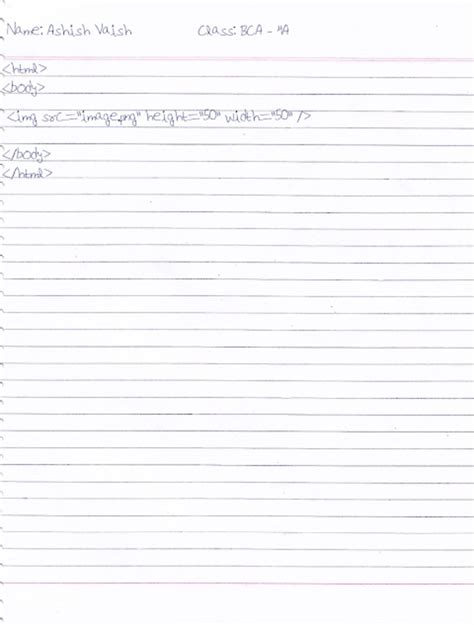 Name: Ashish Vaish Class: BCA - "A
<html>
<body>
<img src="image.png" height="50" width="50" />
</body>
</html>